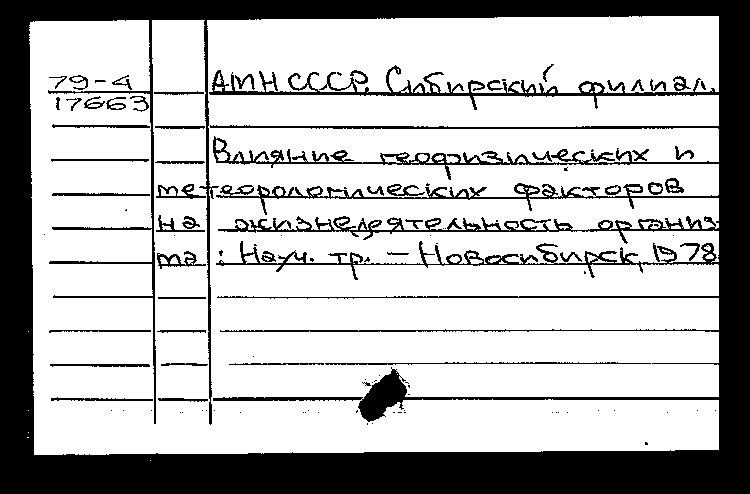 79-4 АМН СССР. Сибирский филиал.
17663
Влияние геофизических и
метеорологических факторов
на жизнедеятельность организ-
ма : Науч. тр. - Новосибирск, 1978